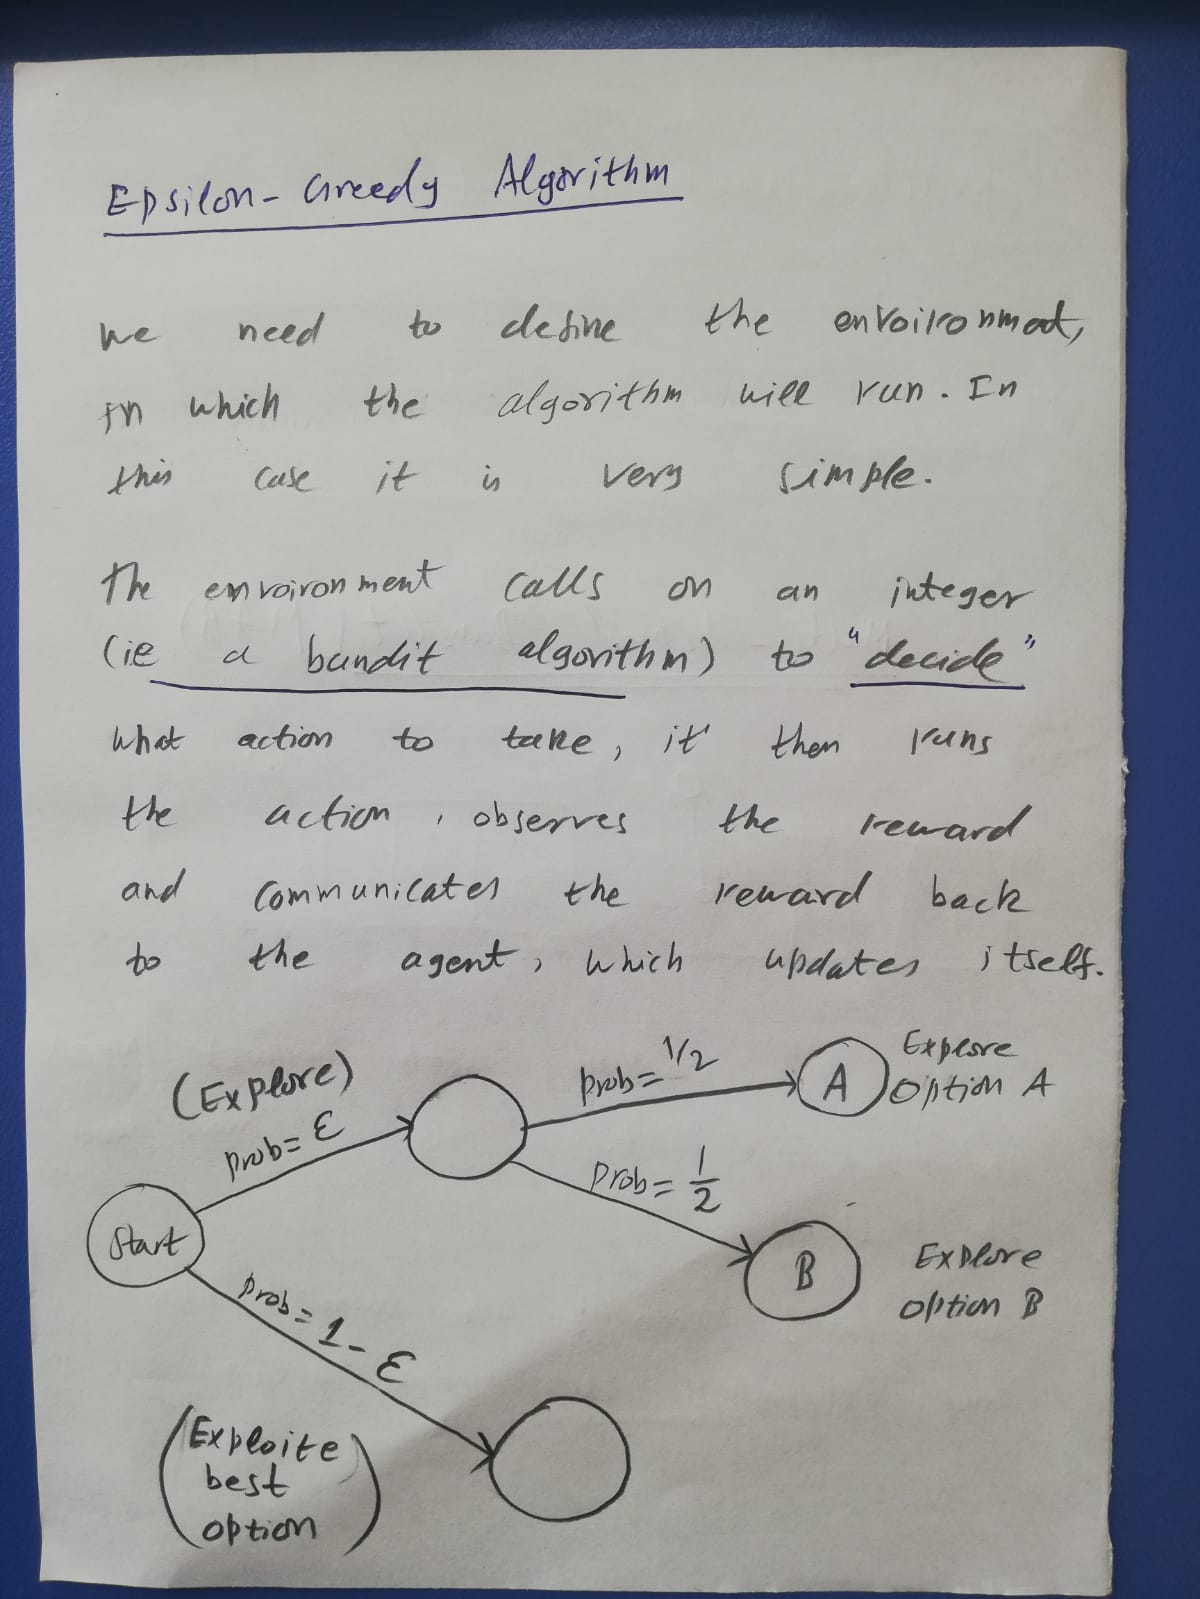 Epsilon-Greedy Algorithm
we need to define the envoironmet,
in which the algorithm will run. In
this case it is very simple.
The envoironment calls on an integer
(ie a bandit algorithm) to "decide"
what action to take, it then runs
the action, observes the reward
and communicates the reward back
to the agent, which updates itself.
(Explore)
prob= ε
prob= 1/2
A
Explore
Option A
prob= 1/2
Start
B
Explore
option B
prob= 1-ε
(Exploite
best
option)